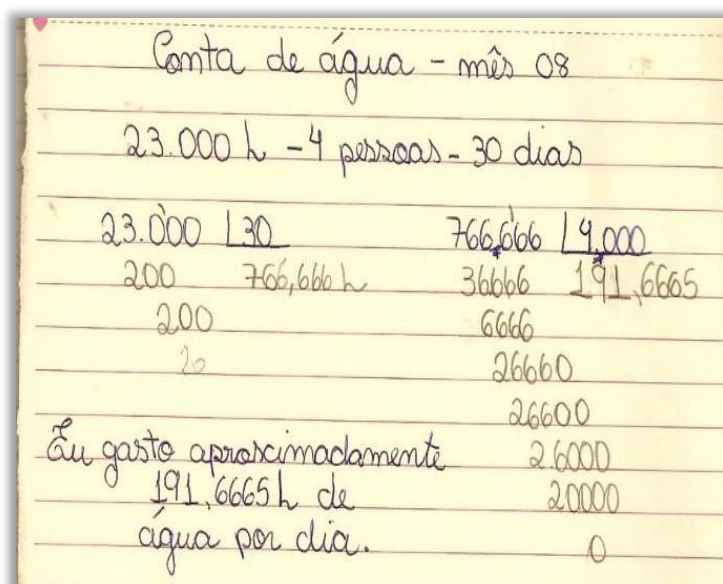 Conta de água - mês 08
23.000 L - 4 pessoas - 30 dias
23.000 30
200 766,666 L
200
20
766,666 4,000
36666 191,6665
6666
26660
26600
26000
20000
0
Eu gasto aproscimadamente
191,6665 L de
água por dia.